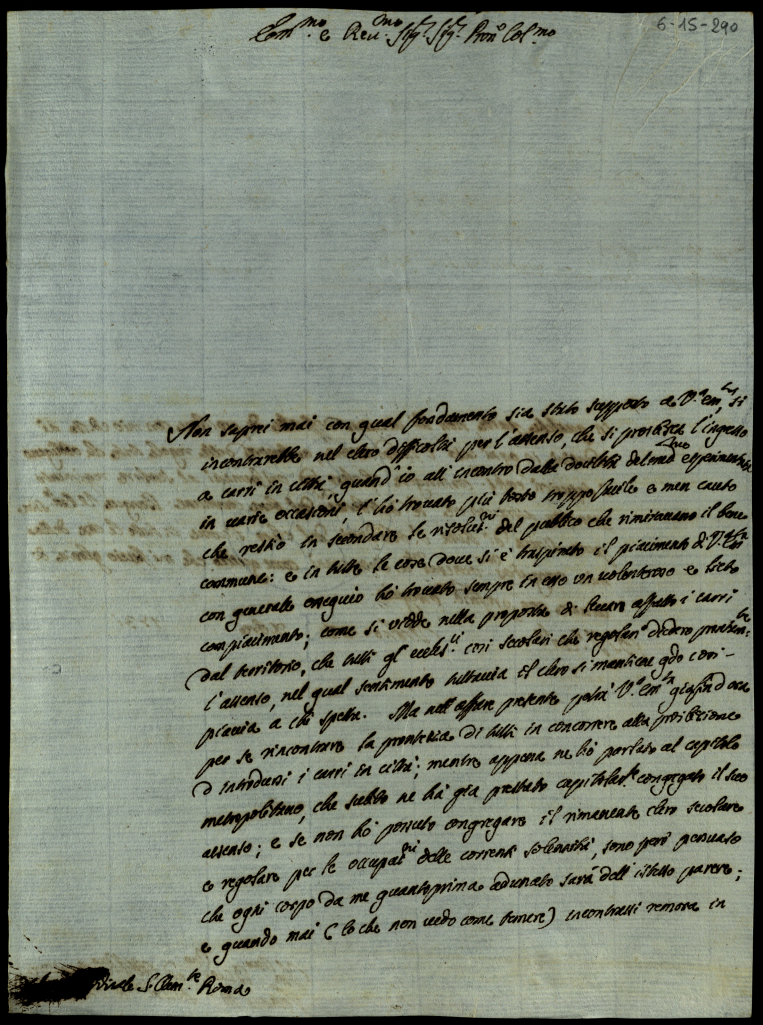 6-15-290
Em.mo e Rev.mo Sig.r Sig.r Pron Col.mo
Non saprei mai con qual fondamento sia stato supposto a V.a Em.za, si
incontrarebbe nel clero difficoltà per l'assenso, che si proibisca l'ingresso
a carri in città, quand'io all'incontro dalla docilità del med.mo esperimentata
in varie occasioni, l'hò trovato più tosto troppo facile e men cauto
che restio in secondare le risoluz.ni del publico che rimiravano il bene
commune: e in tutte le cose dove si è traspirato il piacimento di V.a Em.za
con generale ossequio hò trovato sempre in esso un volenteroso e lieto
compiacimento; come si vidde nella proposta di levare affatto i carri
dal territorio, che tutti gl'eccles.ci così secolari che regolari diedero
l'assenso, nel qual sentimento tuttavia il clero si mantiene q.do così
piaccia a chi spetta. Ma nell'affare presente potrà V.a Em.za
per se rincontrare la prontezza di tutti in concorrere alla proibizione
d'introdursi i carri in città; mentre appena ne hò parlato al capitolo
metropolitano, che subito ne hà già prestato capitolar.te congregato il suo
assenso; e se non hò possuto congregare il rimanente clero secolare
e regolare per le occupaz.ni delle correnti solennità, sono però persuaso
che ogni corpo da me quantoprima adunato sarà dell'istesso parere;
e quando mai (lo che non vedo come temere) incontrassi remora in
S. Clem.te Roma